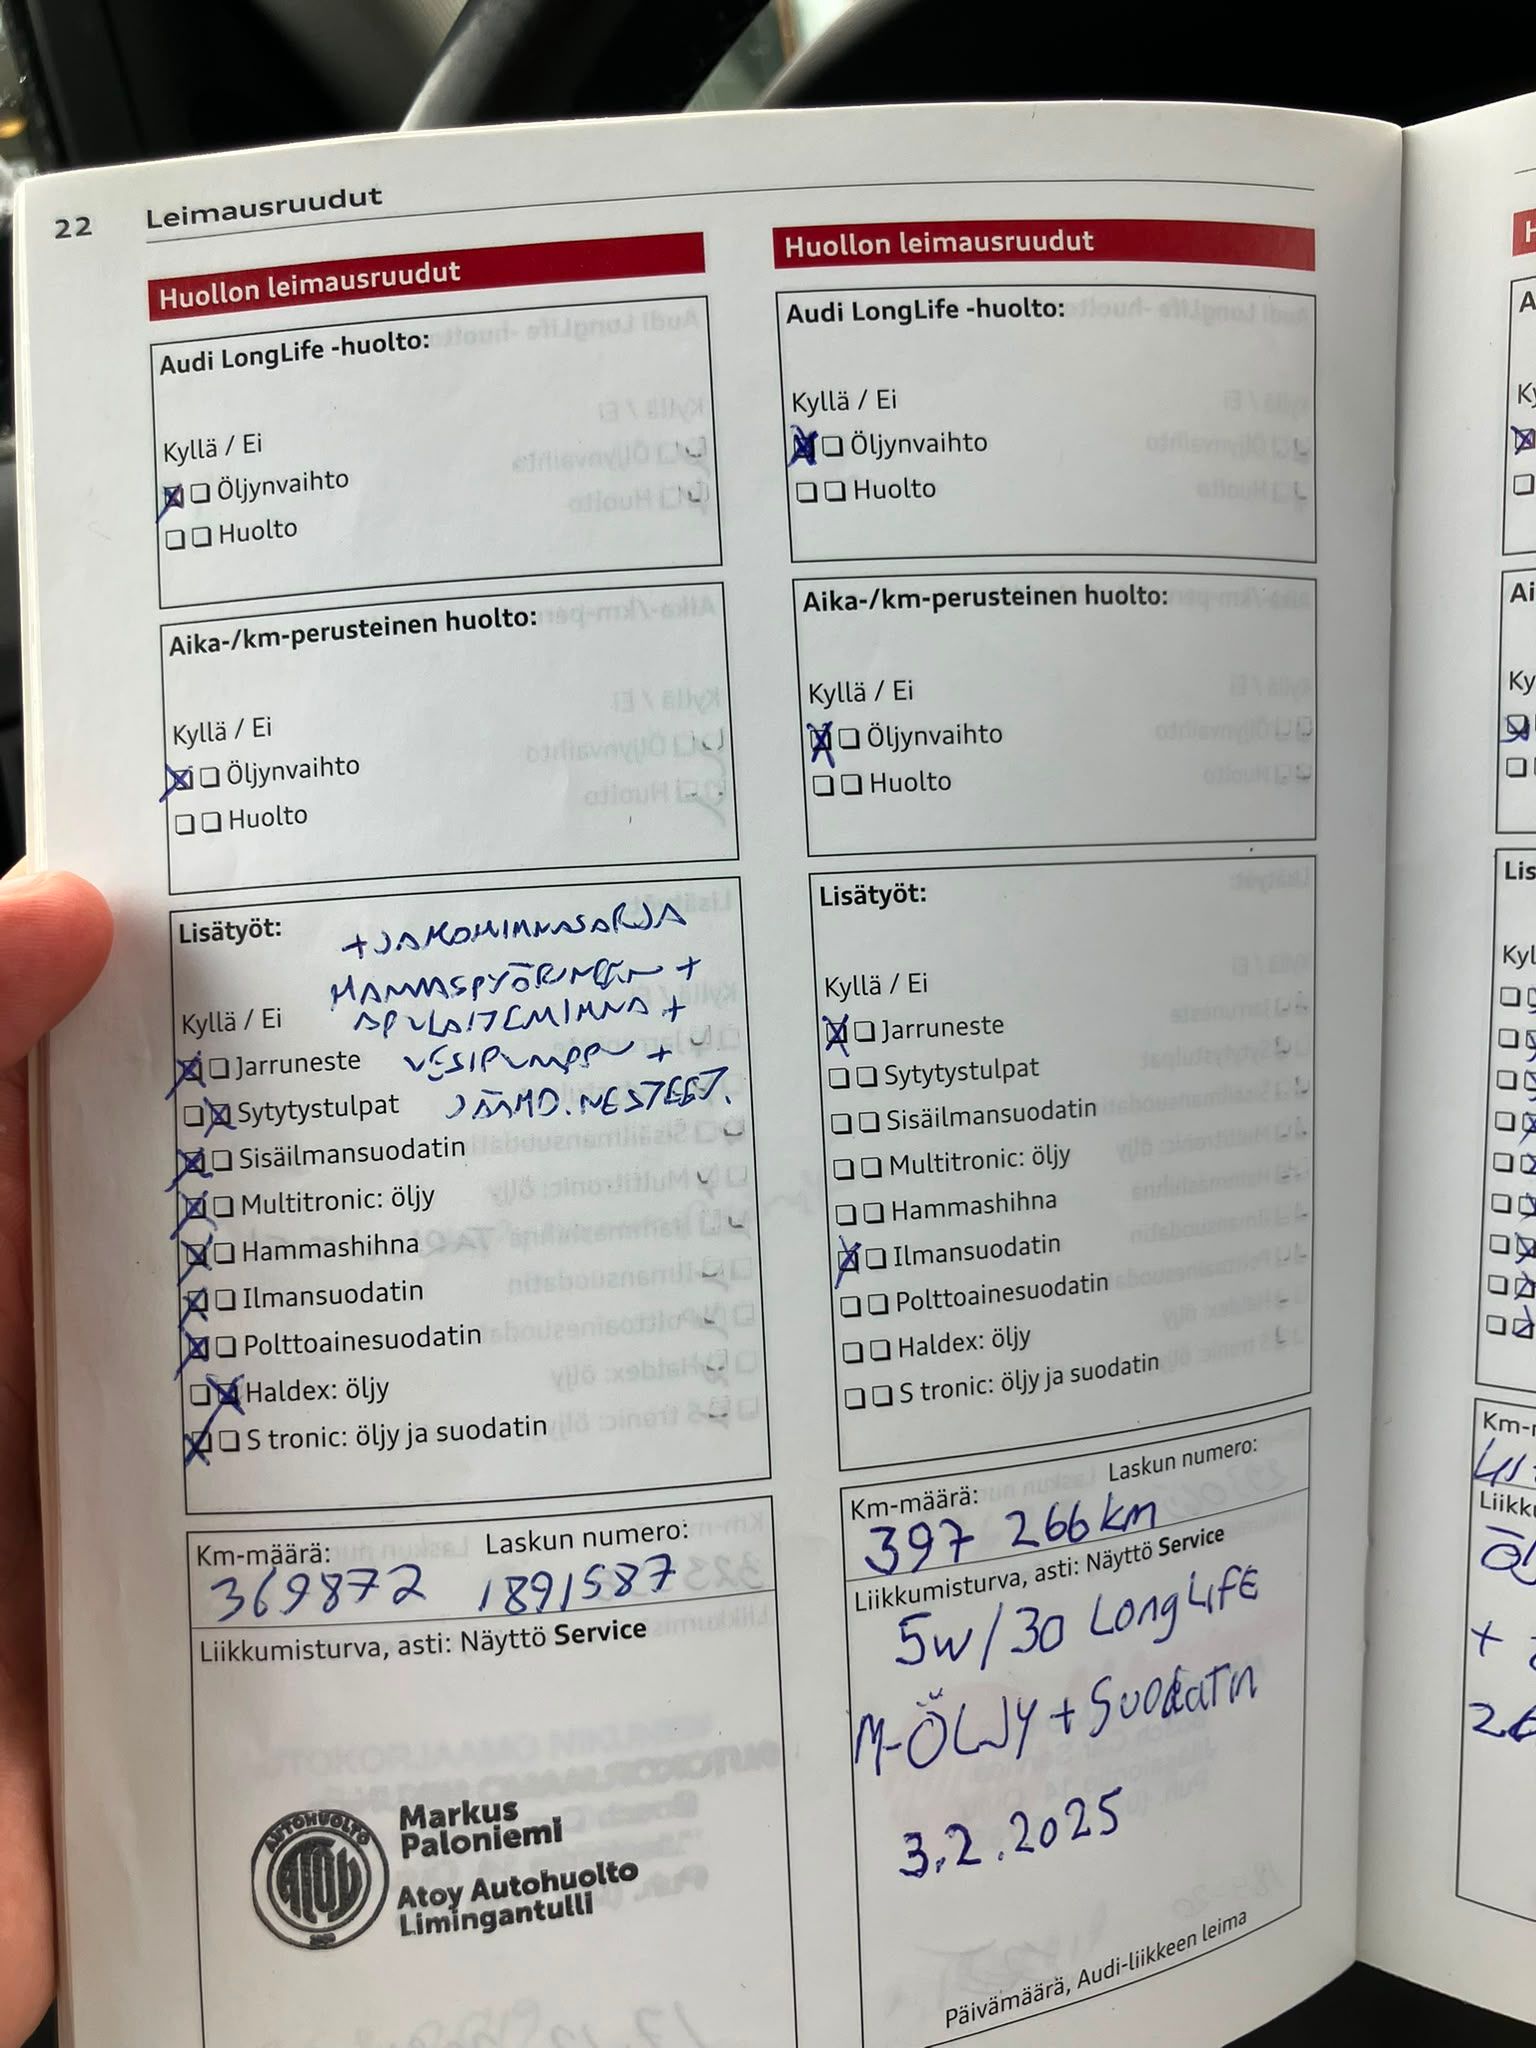 22 Leimausruudut
Huollon leimausruudut
Audi LongLife -huolto:
Kyllä / Ei
Öljynvaihto
Huolto
Aika-/km-perusteinen huolto:
Kyllä / Ei
Öljynvaihto
Huolto
Lisätyöt:
+ JAKOHIHNASARJA
HAMMASPYÖRINEEN +
APULAITEHIHNA +
VESIPUMPPU +
JÄÄHD.NESTEET.
Kyllä / Ei
Jarruneste
Sytytystulpat
Sisäilmansuodatin
Multitronic: öljy
Hammashihna
Ilmansuodatin
Polttoainesuodatin
Haldex: öljy
S tronic: öljy ja suodatin
Km-määrä: Laskun numero:
369872 1891587
Liikkumisturva, asti: Näyttö Service
AUTOHUOLTO
ATOY
Markus
Paloniemi
Atoy Autohuolto
Limingantulli
Huollon leimausruudut
Audi LongLife -huolto:
Kyllä / Ei
Öljynvaihto
Huolto
Aika-/km-perusteinen huolto:
Kyllä / Ei
Öljynvaihto
Huolto
Lisätyöt:
Kyllä / Ei
Jarruneste
Sytytystulpat
Sisäilmansuodatin
Multitronic: öljy
Hammashihna
Ilmansuodatin
Polttoainesuodatin
Haldex: öljy
S tronic: öljy ja suodatin
Km-määrä: Laskun numero:
397 266 km
Liikkumisturva, asti: Näyttö Service
5W/30 LongLIFE
M-ÖLJY + Suodatin
3.2.2025
Päivämäärä, Audi-liikkeen leima